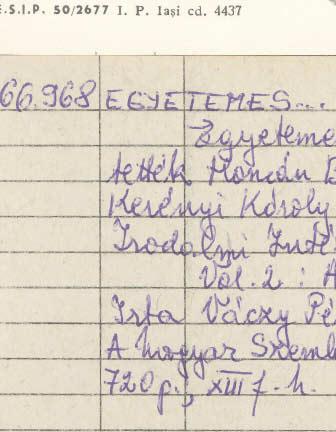 E.S.I.P. 50/2677 I. P. Iași cd. 4437
66.968 EGYETEMES...
Egyeteme
tették Homán B
Kerényi Károly
Irodalmi Inté
Vol. 2 : A
Irta Váczy Pé
A Magyar Szeml
720 p., XIII f. h.